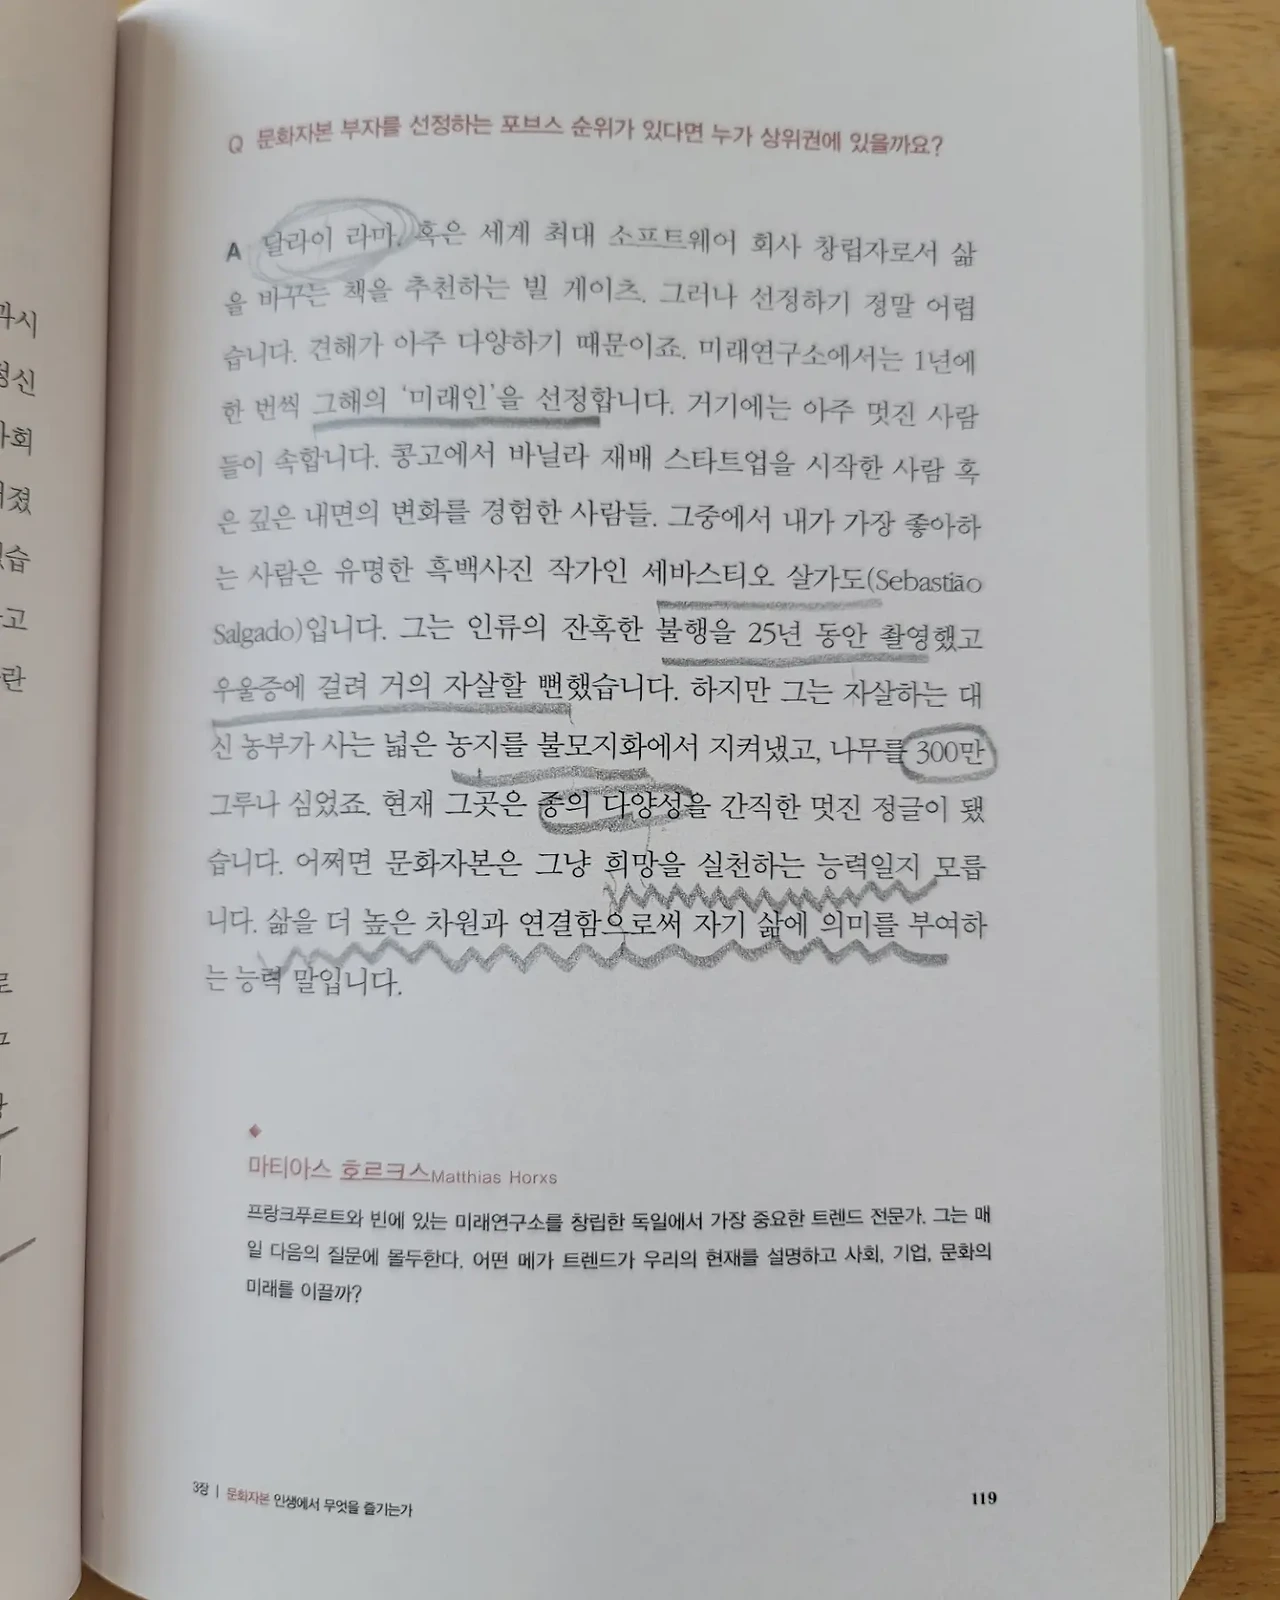 Q 문화자본 부자를 선정하는 포브스 순위가 있다면 누가 상위권에 있을까요?
A 달라이 라마. 혹은 세계 최대 소프트웨어 회사 창립자로서 삶
을 바꾸는 책을 추천하는 빌 게이츠. 그러나 선정하기 정말 어렵
습니다. 견해가 아주 다양하기 때문이죠. 미래연구소에서는 1년에
한 번씩 그해의 ‘미래인’을 선정합니다. 거기에는 아주 멋진 사람
들이 속합니다. 콩고에서 바닐라 재배 스타트업을 시작한 사람 혹
은 깊은 내면의 변화를 경험한 사람들. 그중에서 내가 가장 좋아하
는 사람은 유명한 흑백사진 작가인 세바스티오 살가도(Sebastião
Salgado)입니다. 그는 인류의 잔혹한 불행을 25년 동안 촬영했고
우울증에 걸려 거의 자살할 뻔했습니다. 하지만 그는 자살하는 대
신 농부가 사는 넓은 농지를 불모지화에서 지켜냈고, 나무를 300만
그루나 심었죠. 현재 그곳은 종의 다양성을 간직한 멋진 정글이 됐
습니다. 어쩌면 문화자본은 그냥 희망을 실천하는 능력일지 모릅
니다. 삶을 더 높은 차원과 연결함으로써 자기 삶에 의미를 부여하
는 능력 말입니다.
마티아스 호르크스Matthias Horxs
프랑크푸르트와 빈에 있는 미래연구소를 창립한 독일에서 가장 중요한 트렌드 전문가. 그는 매
일 다음의 질문에 몰두한다. 어떤 메가 트렌드가 우리의 현재를 설명하고 사회, 기업, 문화의
미래를 이끌까?
3장 | 문화자본 인생에서 무엇을 즐기는가
119